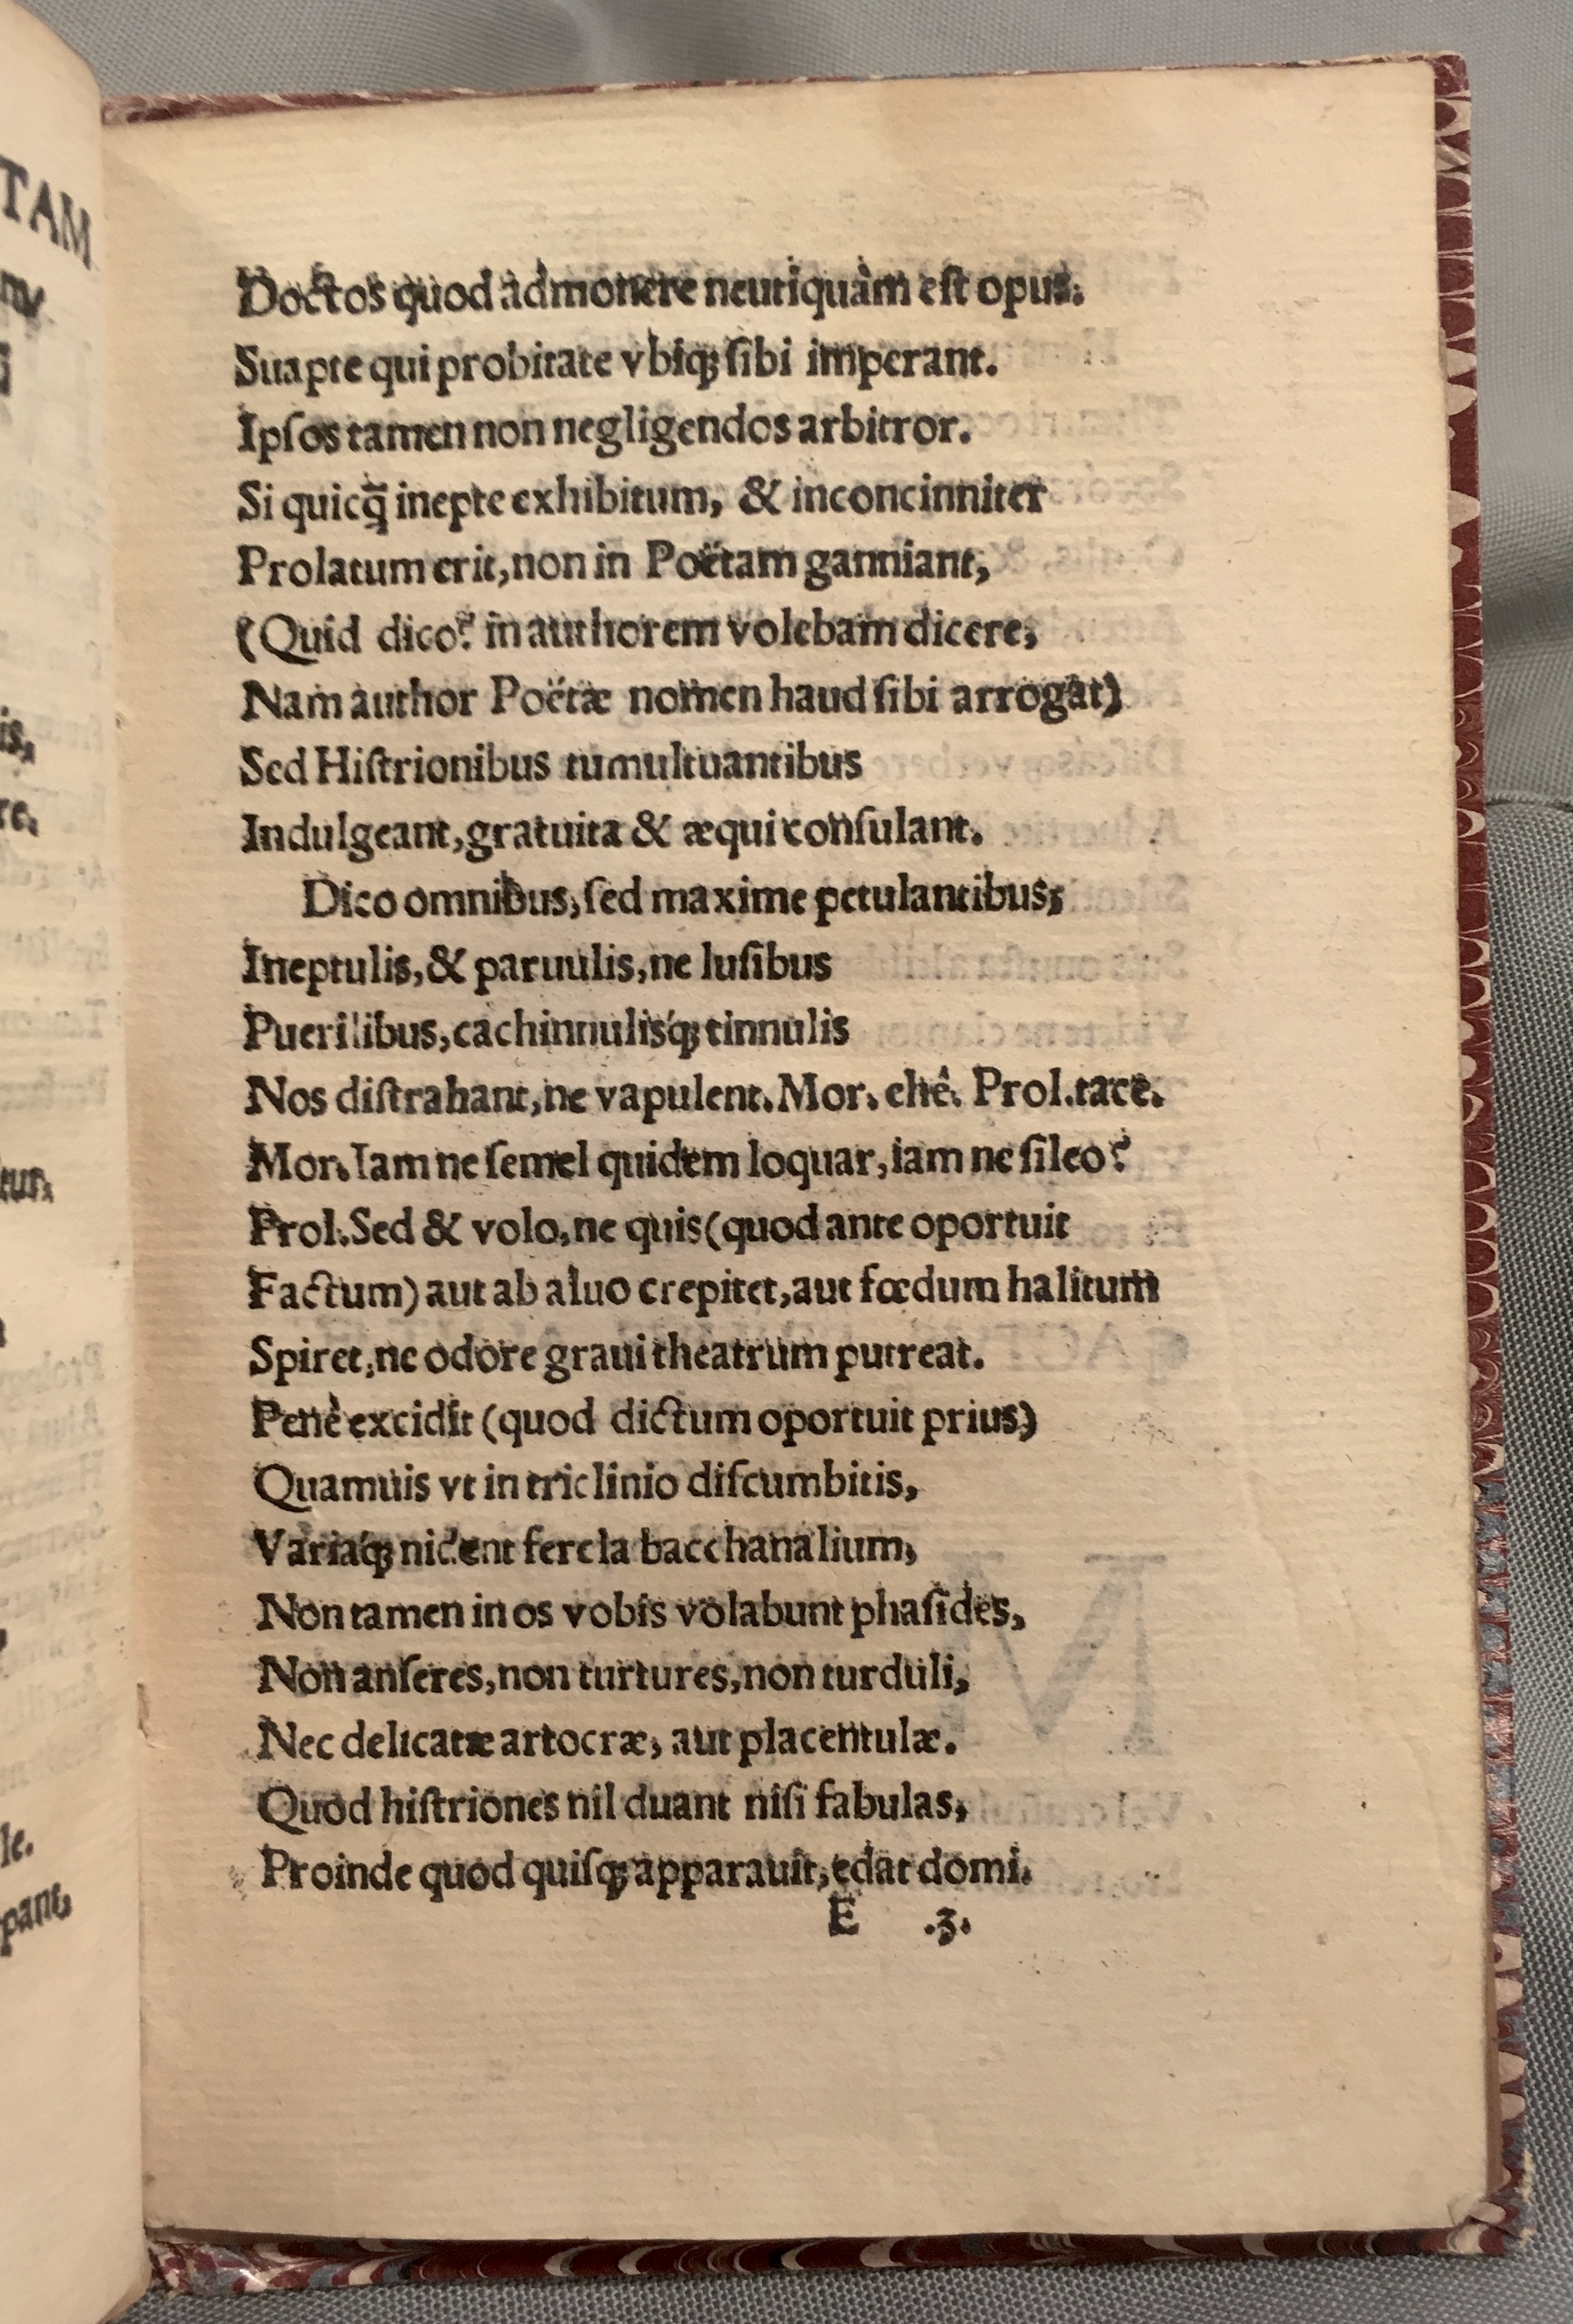 Doctos quod admonere neutiquàm eſt opus.
Suapte qui probitate vbiq; ſibi imperant.
Ipſos tamen non negligendos arbitror.
Si quicq̃ inepte exhibitum, & inconcinniter
Prolatum erit, non in Poëtam ganniant,
(Quid dico? in authorem volebam dicere,
Nam author Poëtæ nomen haud ſibi arrogat)
Sed Hiſtrionibus tumultuantibus
Indulgeant, gratuita & æqui conſulant.
Dico omnibus, ſed maxime petulantibus,
Ineptulis, & paruulis, ne luſibus
Puerilibus, cachinnulisq́; tinnulis
Nos diſtrahant, ne vapulent. Mor. ehê. Prol. tace.
Mor. Iam ne ſemel quidem loquar, iam ne ſileo?
Prol. Sed & volo, ne quis (quod ante oportuit
Factum) aut ab aluo crepitet, aut fœdum halitum
Spiret, ne odore graui theatrum putreat.
Penè excidit (quod dictum oportuit prius)
Quamuis vt in triclinio diſcumbitis,
Variaq́; nident fercla bacchanalium,
Non tamen in os vobis volabunt phaſides,
Non anſeres, non turtures, non turduli,
Nec delicatæ artocræ, aut placentulæ.
Quod hiſtriones nil duant niſi fabulas,
Proinde quod quiſq; apparauit, edat domi.
E .3.